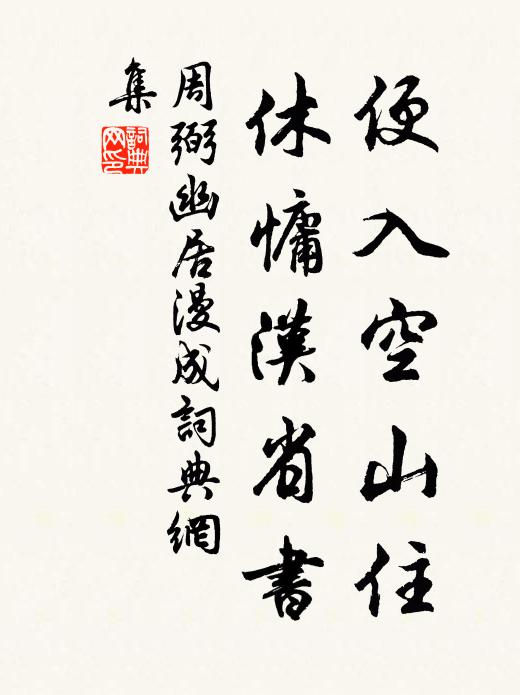 便入空山住
休慵漢省書
周弼幽居漫成詞典網
集
詞典網印